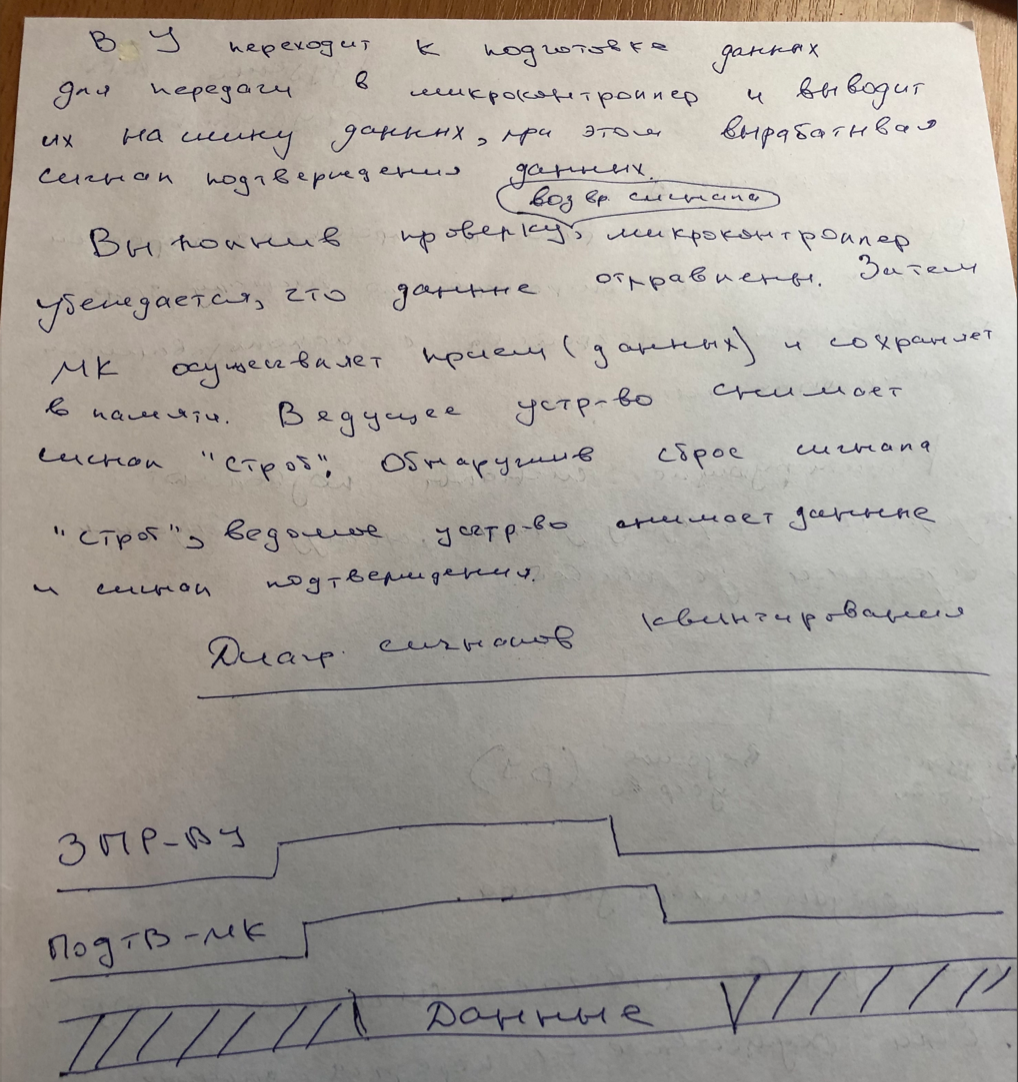 ВУ переходит к подготовке данных
для передачи в микроконтроллер и выводит
их на шину данных, при этом вырабатывая
сигнал подтверждения данных.
возвр. сигнала
Выполнив проверку, микроконтроллер
убеждается, что данные отправлены. Затем
МК осуществляет прием (данных) и сохраняет
в памяти. Ведущее устр-во снимает
сигнал "строб". Обнаружив сброс сигнала
"строб", ведомое устр-во снимает данные
и сигнал подтверждения.
Диагр. сигналов квинтирования
ЗПР-ВУ
Подтв-МК
Данные